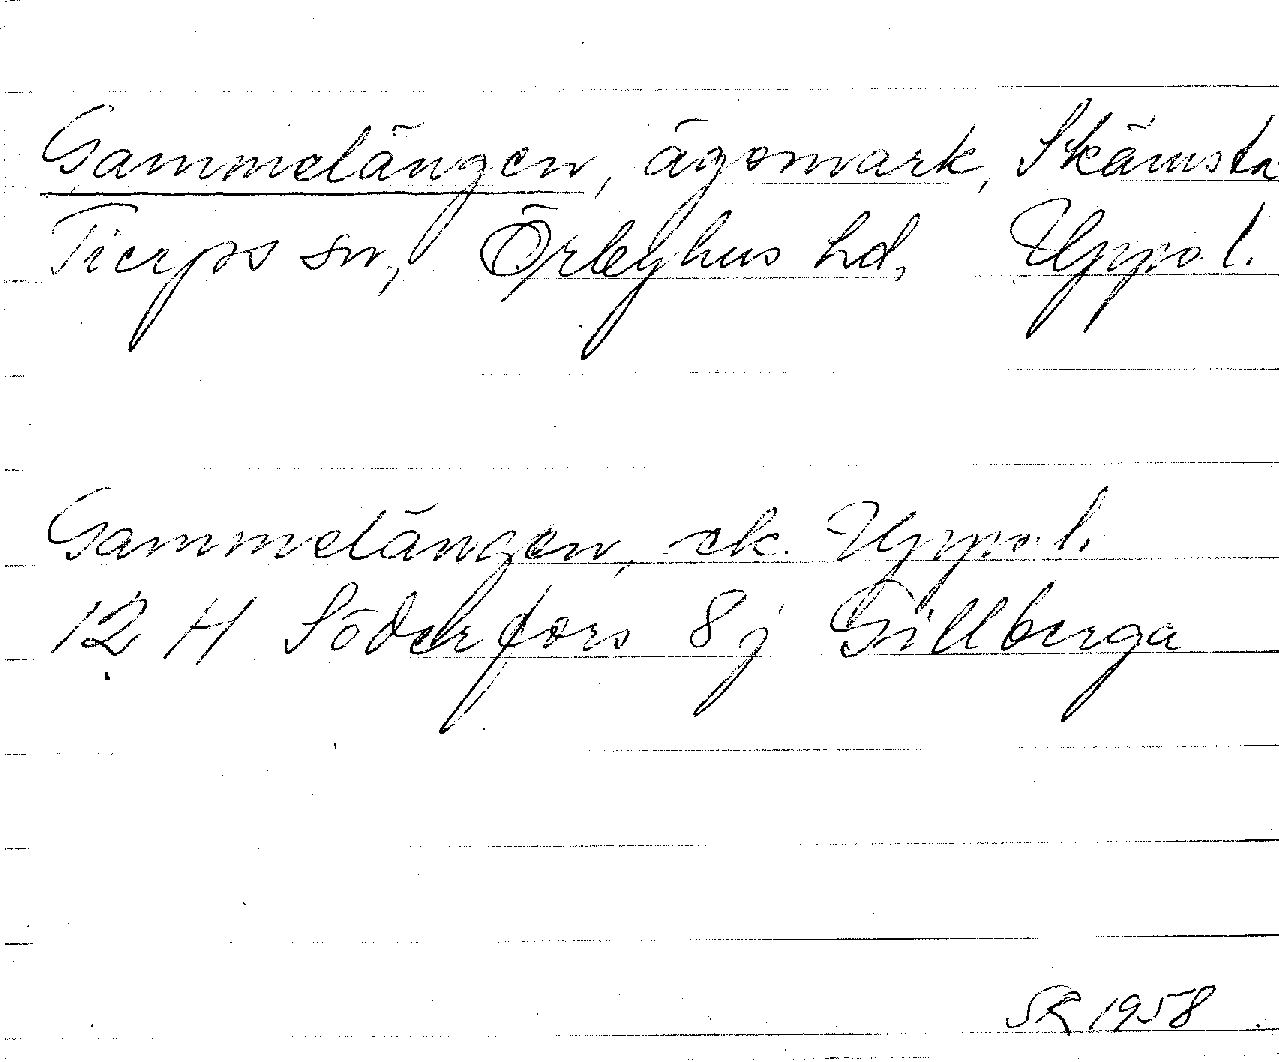 Gammelängen, ägomark, Skämsta
Tierps sn, Örbyhus hd, Uppl.
Gammelängen, ek. Uppl.
12 H Söderfors 8j Gillberga
SR 1958